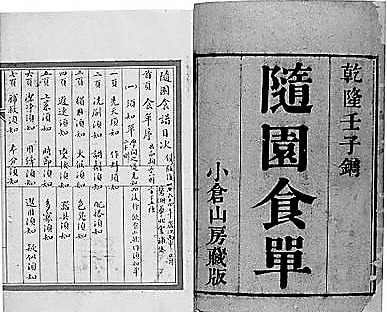 乾隆壬子鐫
隨園食單
小倉山房藏版
隨園食譜目次
首頁 食單序
(一)須知單
一頁 先天須知 作料須知
二頁 洗刷須知 調劑須知 配搭須知
三頁 獨用須知 火候須知 色臭須知
四頁 遲速須知 變換須知 器具須知
五頁 上菜須知 時節須知 多寡須知
六頁 潔淨須知 用縴須知 選用須知 疑似須知
七頁 補救須知 本分須知